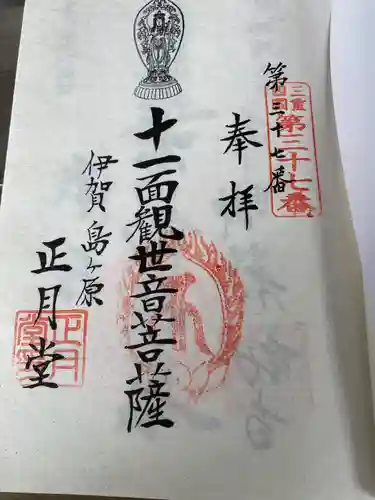 第三十七番
三重
四国
第三十七番
奉拝
十一面観世音菩薩
伊賀島ヶ原
正月堂
正月
堂印